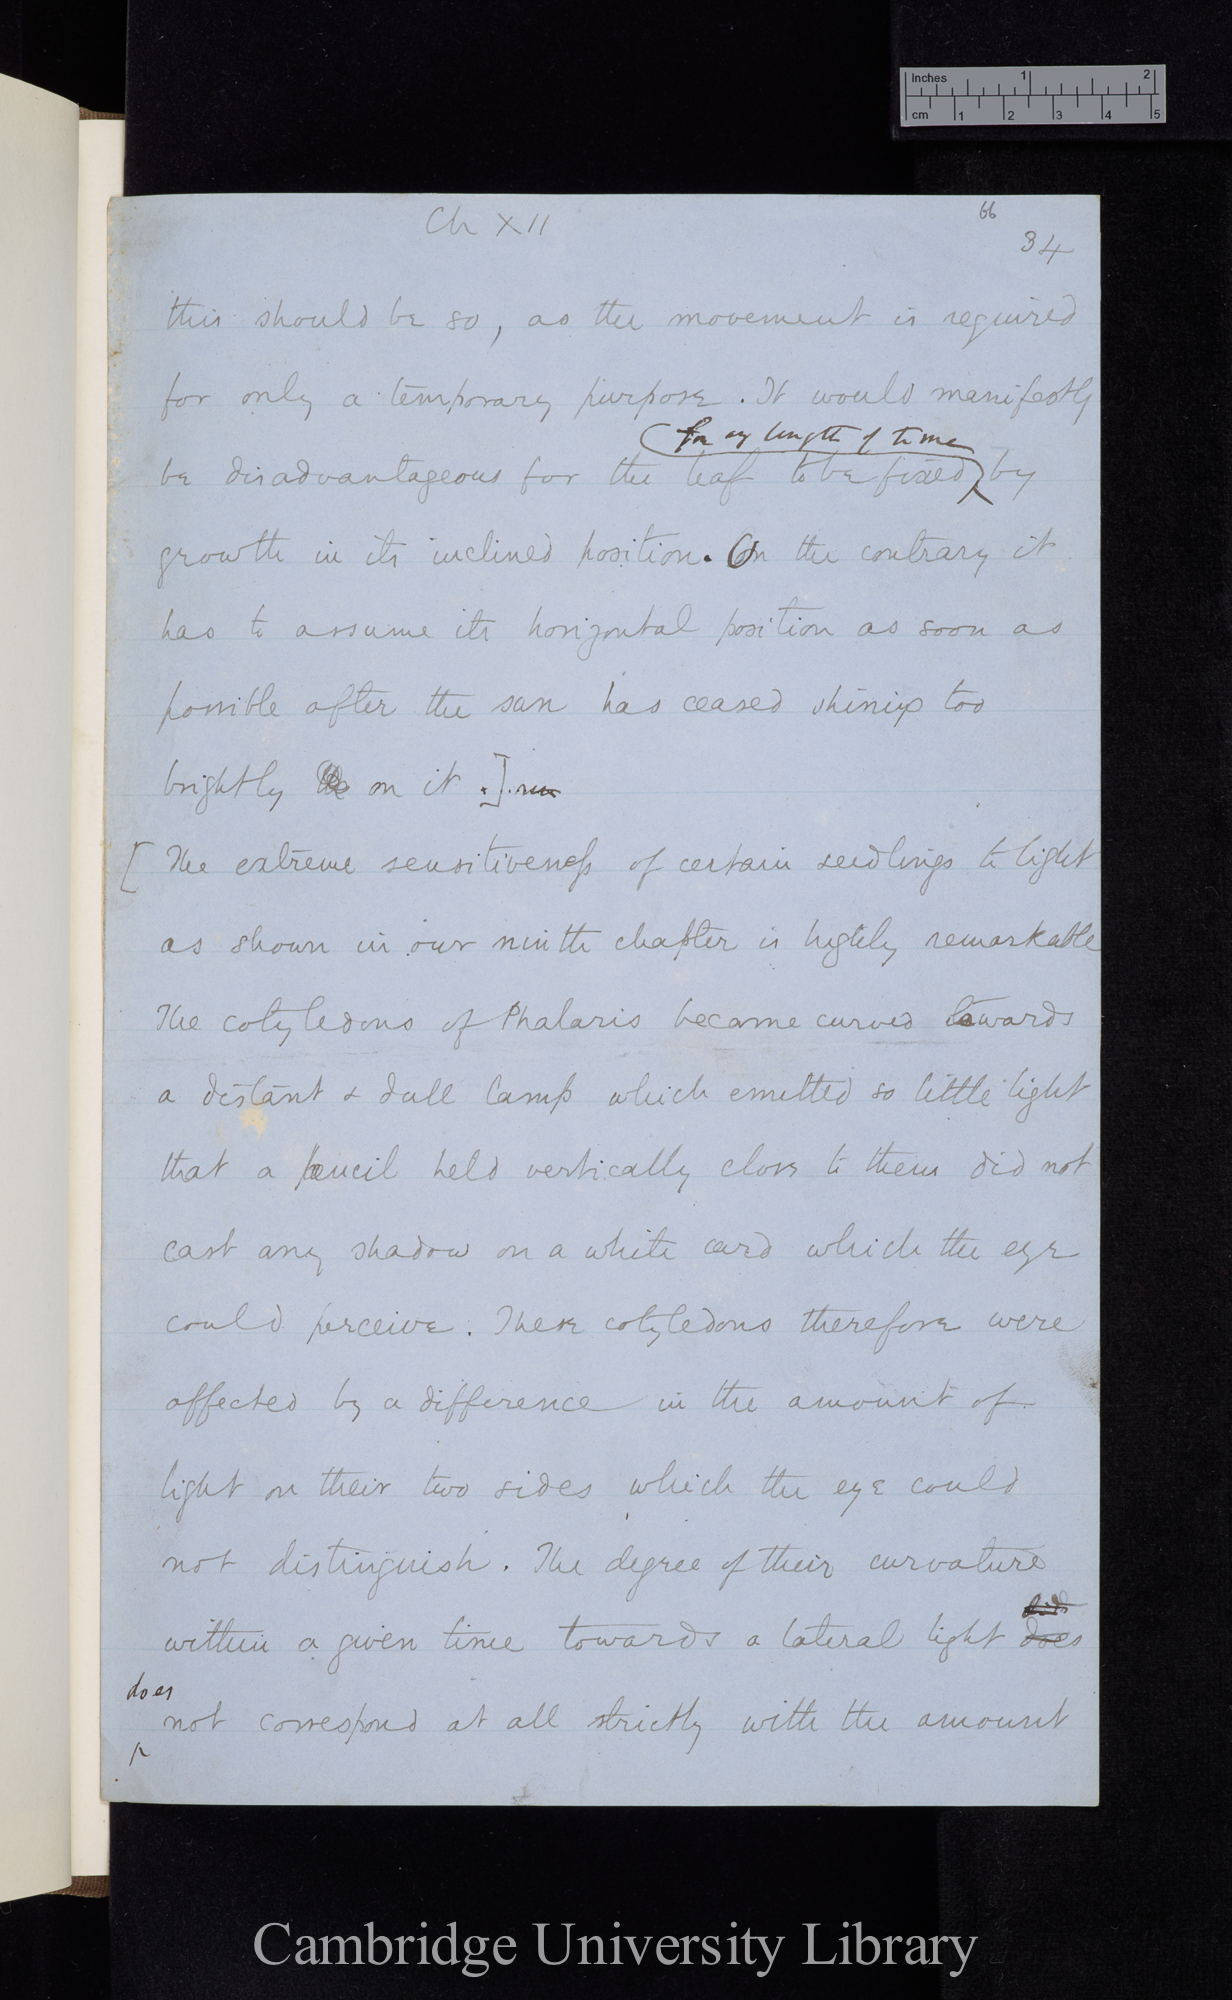 Inches 1 2
cm 1 2 3 4 5
Ch XII
66
34
this should be so, as the movement is required
for only a temporary purpose. It would manifestly
for any length of time
be disadvantageous for the leaf to be fixed by
growth in its inclined position. On the contrary it
has to assume its horizontal position as soon as
possible after the sun has ceased shining too
brightly on it.] run
[The extreme sensitiveness of certain seedlings to light
as shown in our ninth chapter is highly remarkable
The cotyledons of Phalaris became curved towards
a distant & dull lamp which emitted so little light
that a pencil held vertically close to them did not
cast any shadow on a white card which the eye
could perceive. These cotyledons therefore were
affected by a difference in the amount of
light on their two sides which the eye could
not distinguish. The degree of their curvature
did
within a given time towards a lateral light does
does
not correspond at all strictly with the amount
Cambridge University Library